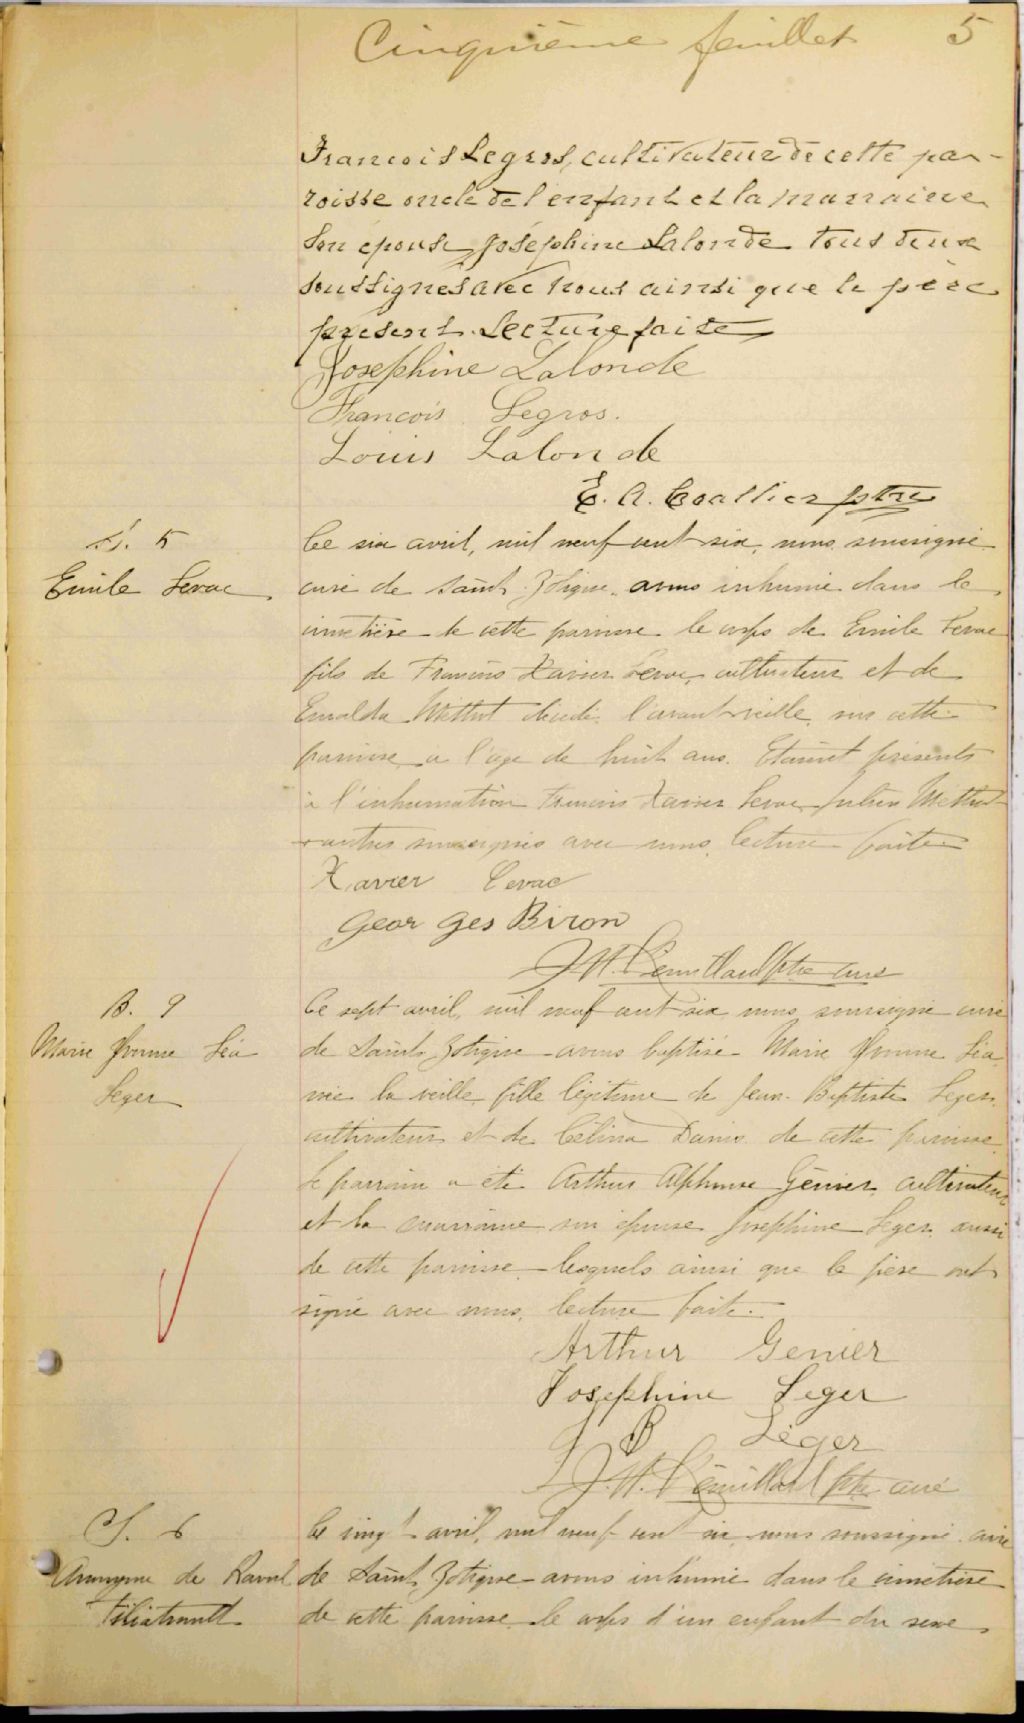 Cinquième feuillet 5
Francois Legros, cultivateur de cette pa-
roisse oncle de l'enfant et la marraine
Son épouse Joséphine Lalonde tous deux
soussignés avec nous ainsi que le père
présent. Lecture faite
Josephine Lalonde
Francois Legros.
Louis Lalonde
E. A. Coallier ptre
S. 5
Emile Levac
Ce six avril, mil neuf cent six, nous soussigné
curé de Saint Zotique avons inhumé dans le
cimetière de cette paroisse le corps de Emile Levac
fils de François Xavier Levac, cultivateur et de
décédé l'avant veille sur cette
paroisse, à l'age de huit ans. Etaient présents
à l'inhumation Francois Xavier Levac, Julien
autres soussignés avec nous, lecture faite.
Xavier Levac
Georges Biron
ptre curé
B. 9
Marie Yvonne Léa
Leger
Ce sept avril, mil neuf cent six nous soussigné curé
de Saint Zotique avons baptisé Marie Yvonne Léa
née la veille, fille légitime de Jean-Baptiste Leger
cultivateur et de Célina Danis de cette paroisse.
Le parrain a été Arthur Alphonse Génier, cultivateur
et la marraine son épouse Josephine Leger, aussi
de cette paroisse lesquels ainsi que le père ont
signé avec nous, lecture faite.
Arthur Genier
Josephine Leger
J B Léger
J. H. ptre curé
S. 6
Anonyme de Raoul
Filiatrault
Ce vingt avril, mil neuf cent six, nous soussigné curé
de Saint Zotique avons inhumé dans le cimetière
de cette paroisse le corps d'un enfant du sexe